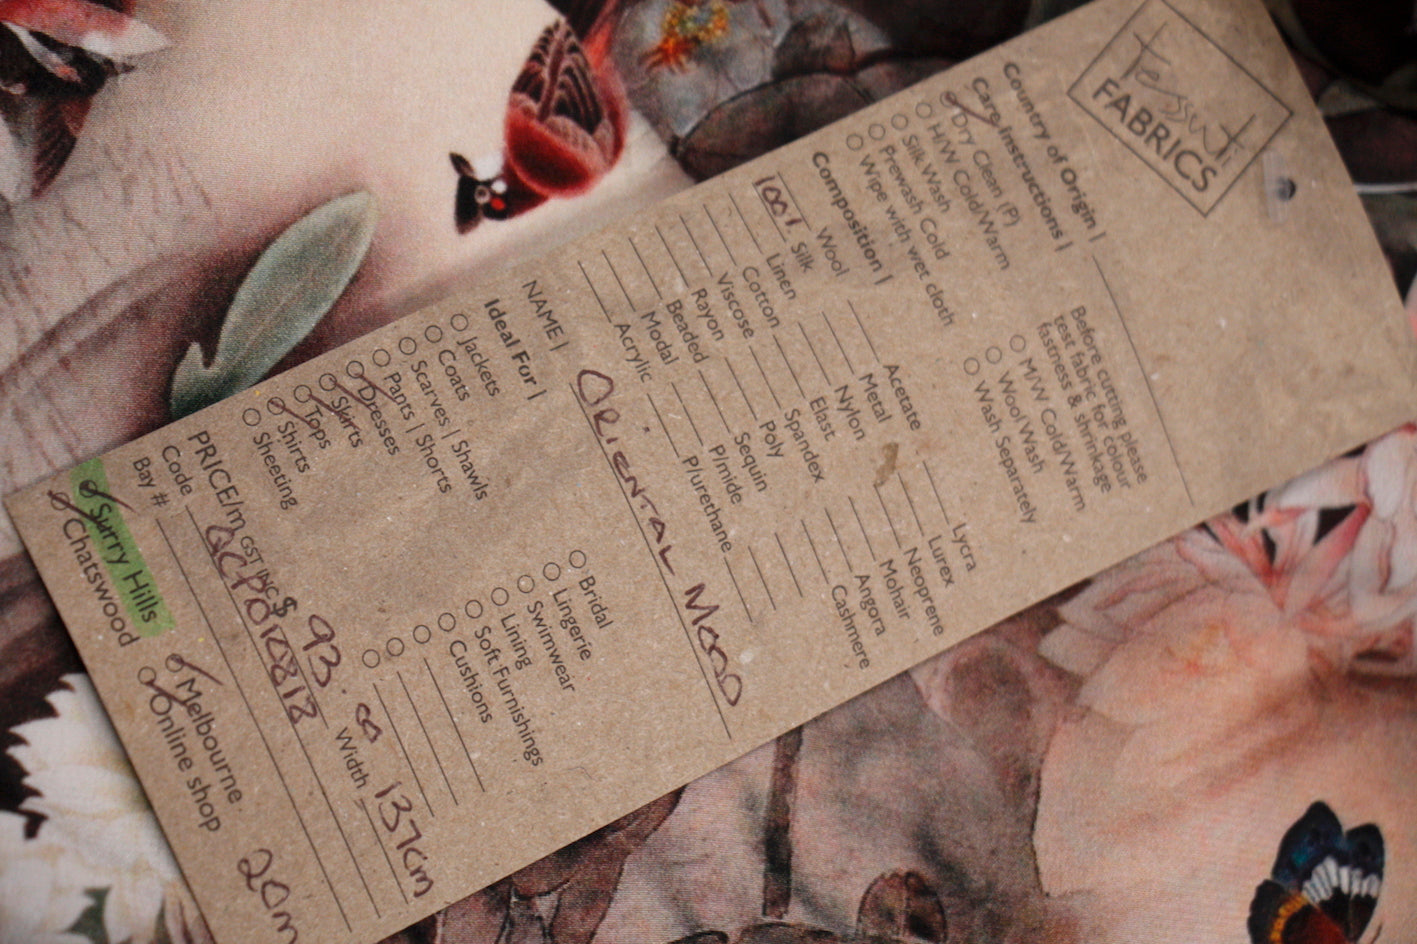 Tessuti
FABRICS
Country of Origin |
Care Instructions |
Dry Clean (P)
H/W Cold/Warm
Silk Wash
Prewash Cold
Wipe with wet cloth
Before cutting please
test fabric for colour
fastness & shrinkage
M/W Cold/Warm
Wool Wash
Wash Separately
Composition |
Wool
100% Silk
Linen
Cotton
Viscose
Rayon
Beaded
Modal
Acrylic
Acetate
Metal
Nylon
Elast
Spandex
Poly
Sequin
P/mide
P/urethane
Lycra
Lurex
Neoprene
Mohair
Angora
Cashmere
NAME | ORIENTAL MOOD
Ideal For |
Jackets
Coats
Scarves | Shawls
Pants | Shorts
Dresses
Skirts
Tops
Shirts
Sheeting
Bridal
Lingerie
Swimwear
Lining
Soft Furnishings
Cushions
PRICE/m GST INC $ 93.00 Width 137cm
Code
Bay #
Surry Hills
Chatswood
Melbourne
Online shop
20m